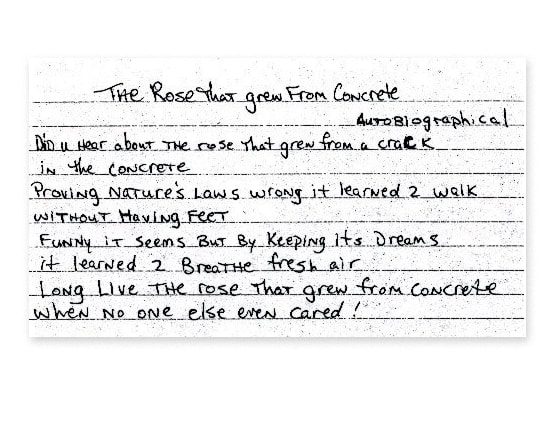 The Rose that grew From Concrete
Autobiographical
Did u hear about the rose that grew from a crack
in the concrete
Proving Nature's Laws wrong it learned 2 walk
without Having Feet
Funny it seems But By Keeping its Dreams
it learned 2 Breathe fresh air
Long Live The rose That grew from concrete
when no one else even cared!